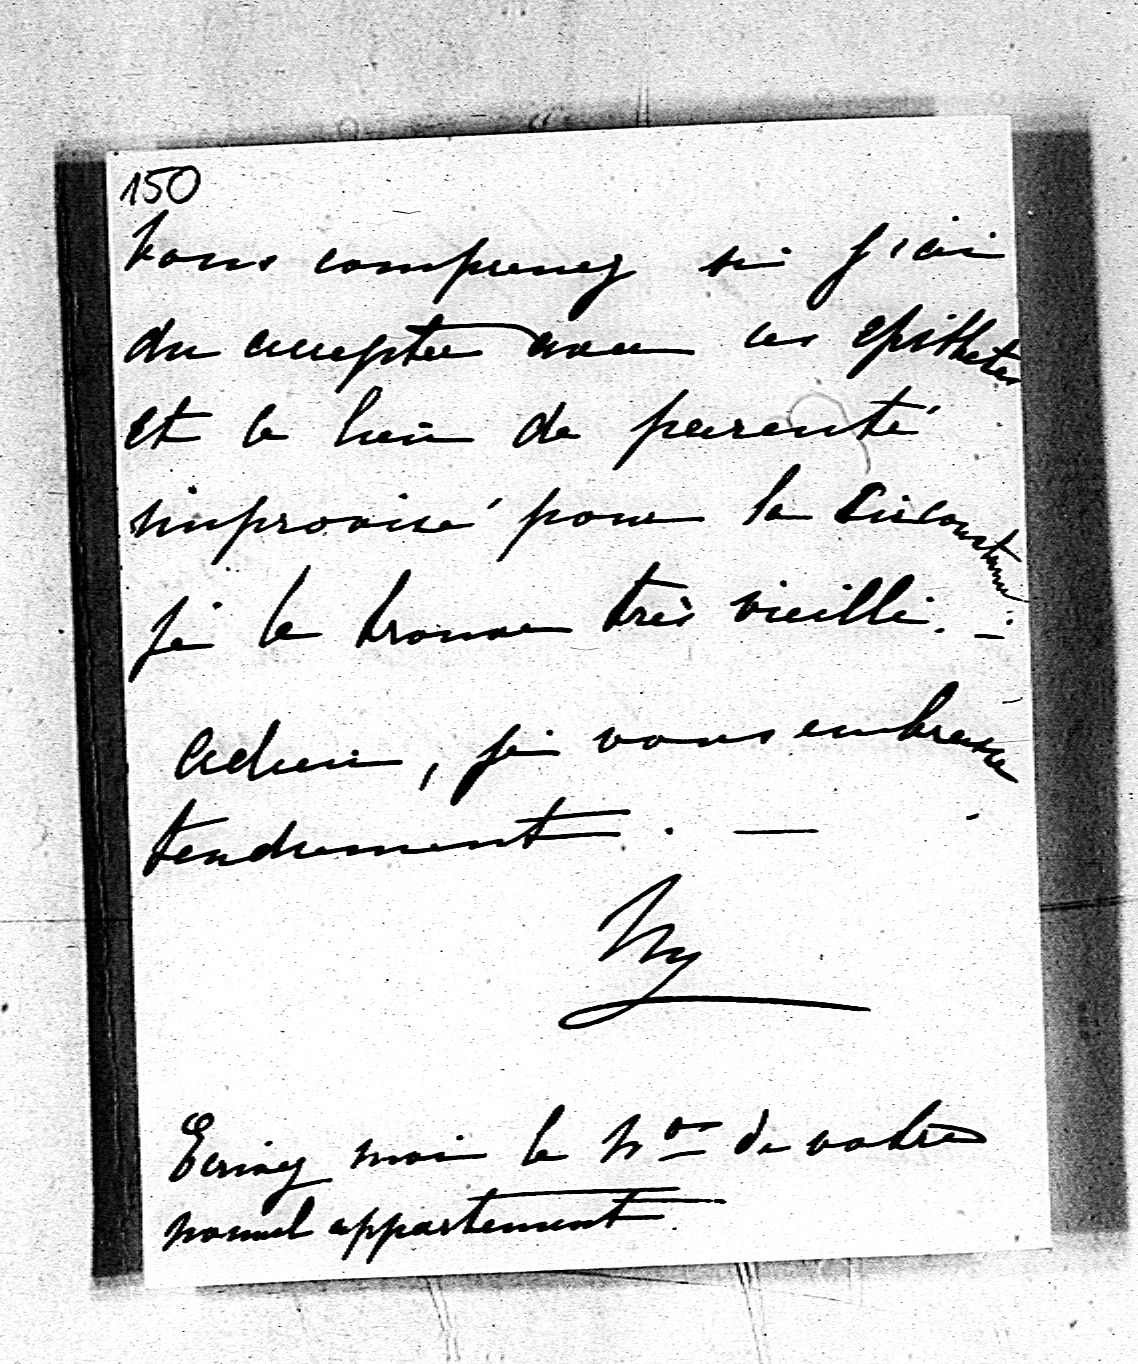 150
Vous comprenez si j'ai
du accepter avec ces epithetes
et le lien de parenté
improvisé pour la circonstance.
Je le trouve très vieilli. —
Adieu, je vous embrasse
tendrement. —
Ny
Ecrivez moi le No de votre
nouvel appartement.